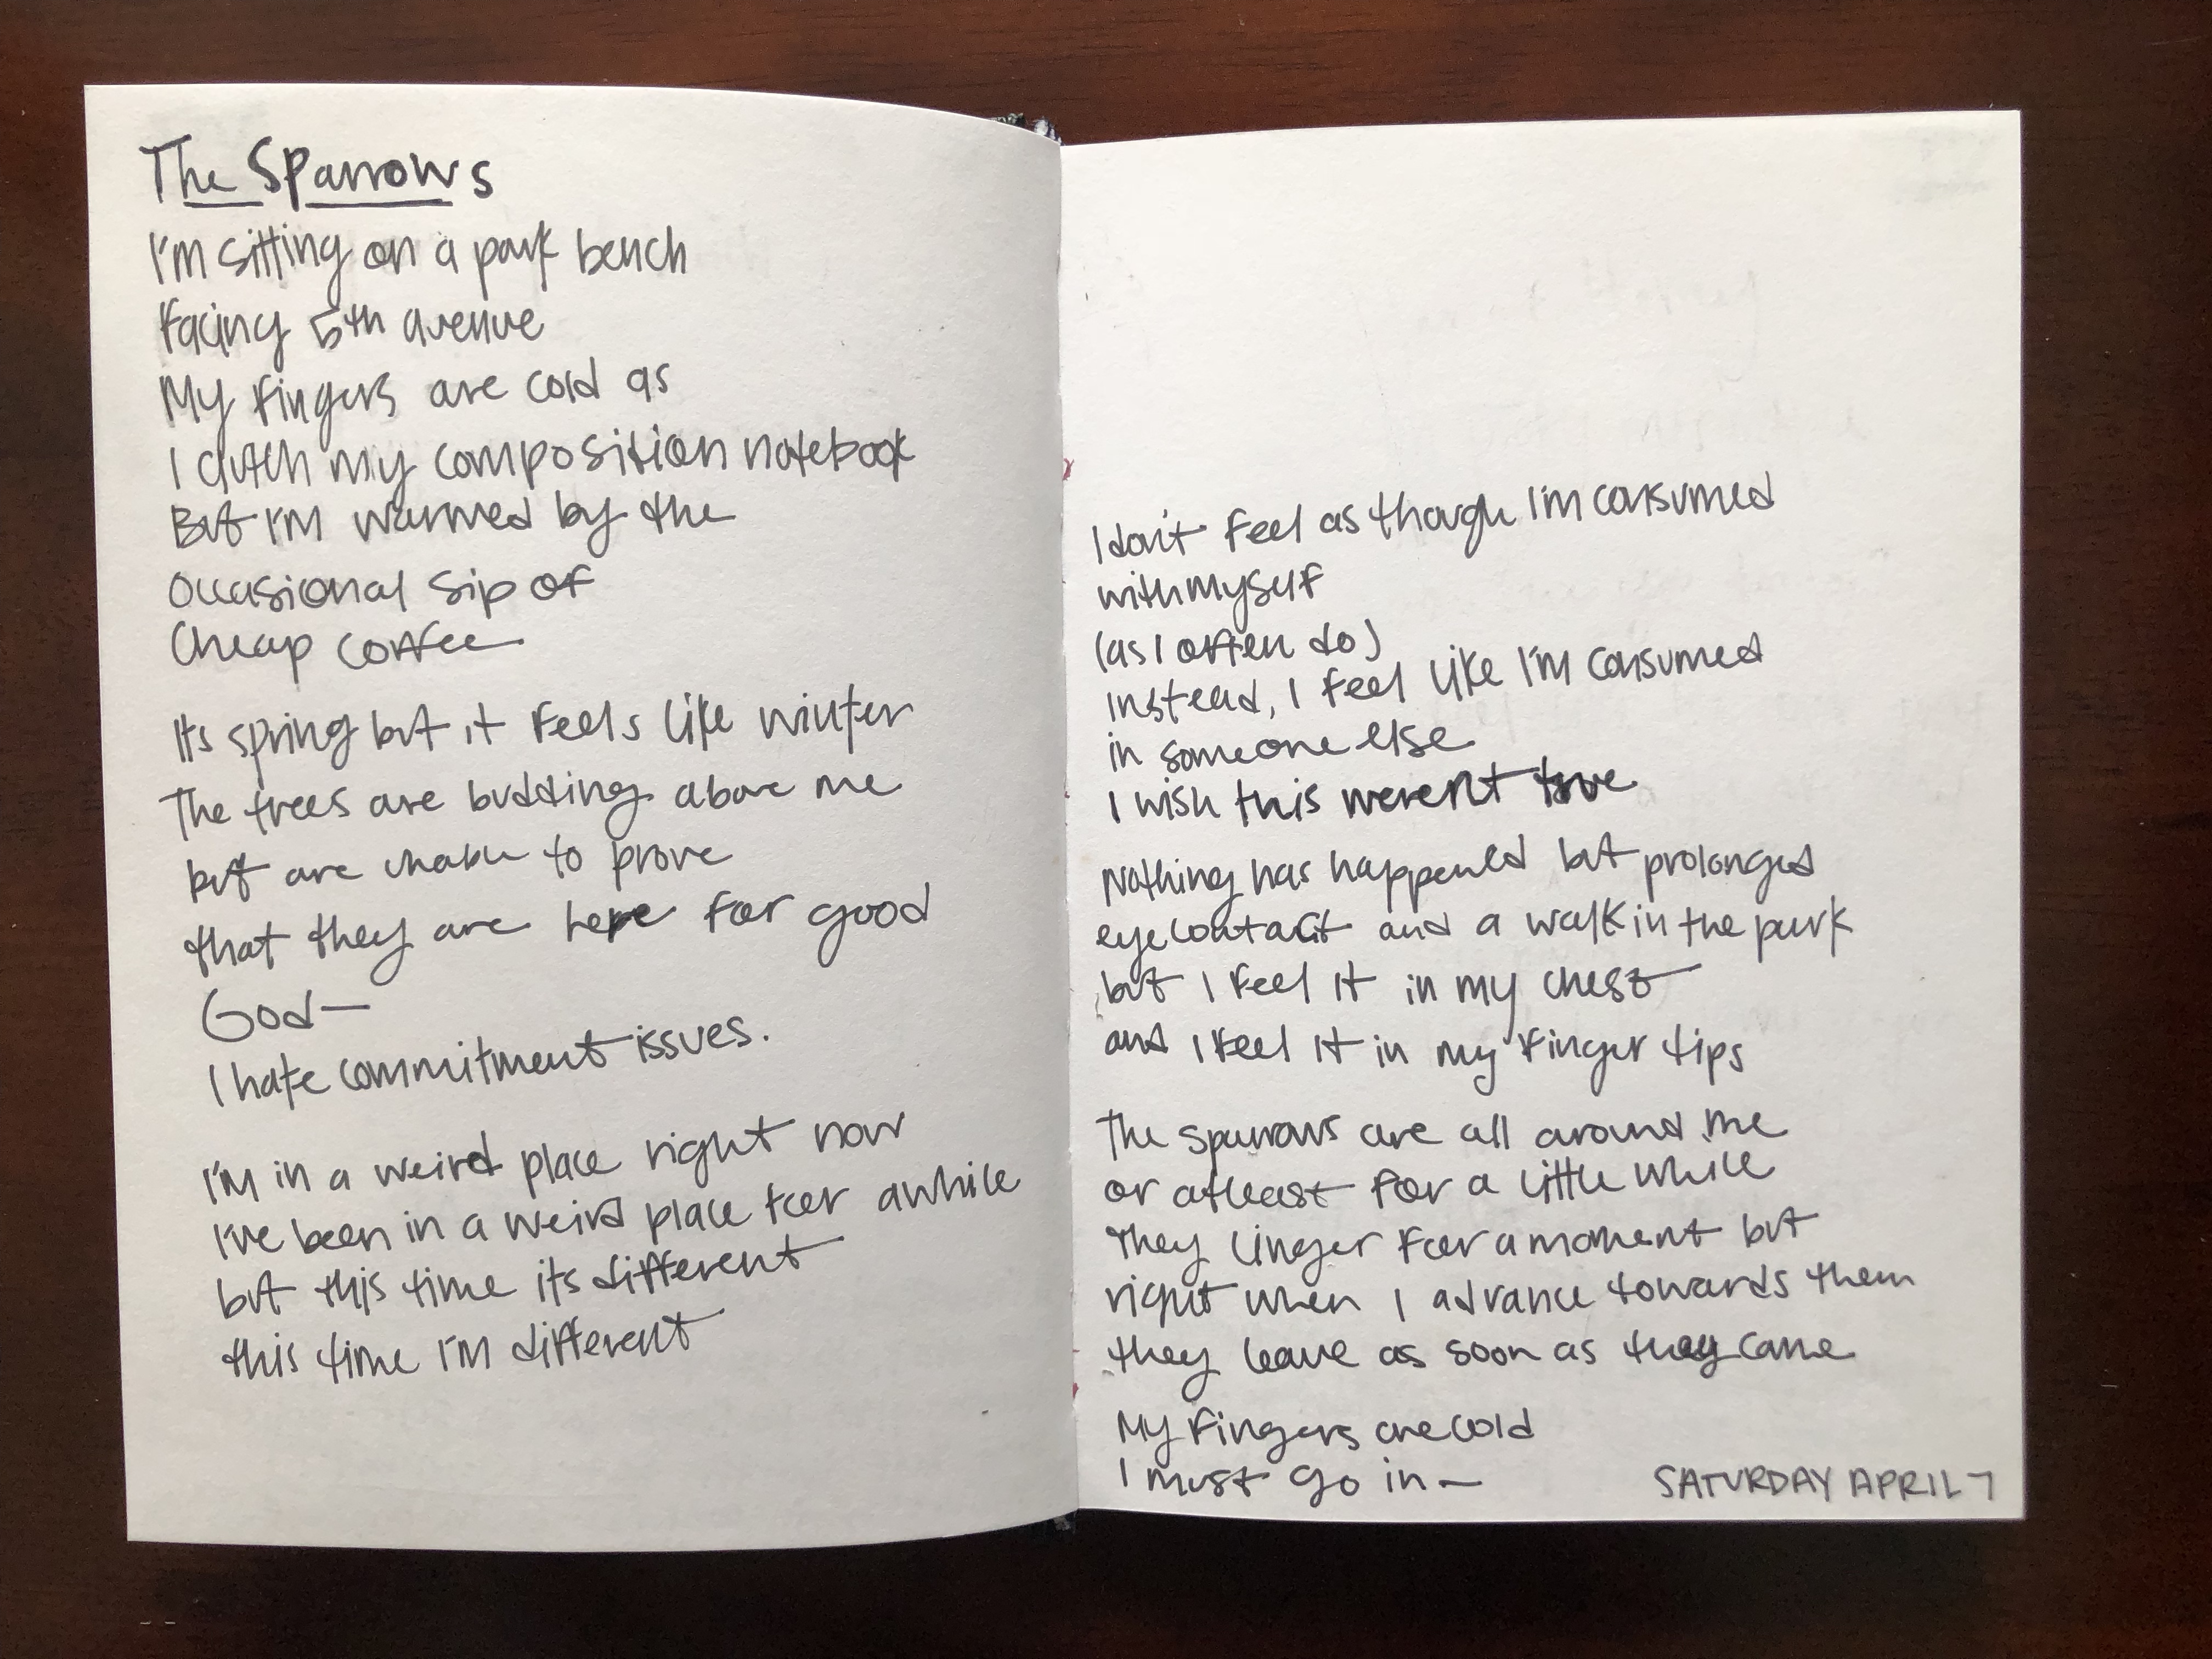 The Sparrows
I'm sitting on a park bench
facing 5th avenue
My fingers are cold as
I clutch my composition notebook
But I'm warmed by the
occasional sip of
cheap coffee
Its spring but it feels like winter
The trees are budding above me
but are unable to prove
that they are here for good
God—
I hate commitment issues.
I'm in a weird place right now
I've been in a weird place for awhile
but this time its different
this time I'm different
I don't feel as though I'm consumed
with myself
(as I often do)
Instead, I feel like I'm consumed
in someone else
I wish this weren't true
Nothing has happened but prolonged
eye contact and a walk in the park
but I feel it in my chest
and I feel it in my finger tips
The sparrows are all around me
or atleast for a little while
They linger for a moment but
right when I advance towards them
they leave as soon as they came
My fingers are cold
I must go in—
SATURDAY APRIL 7